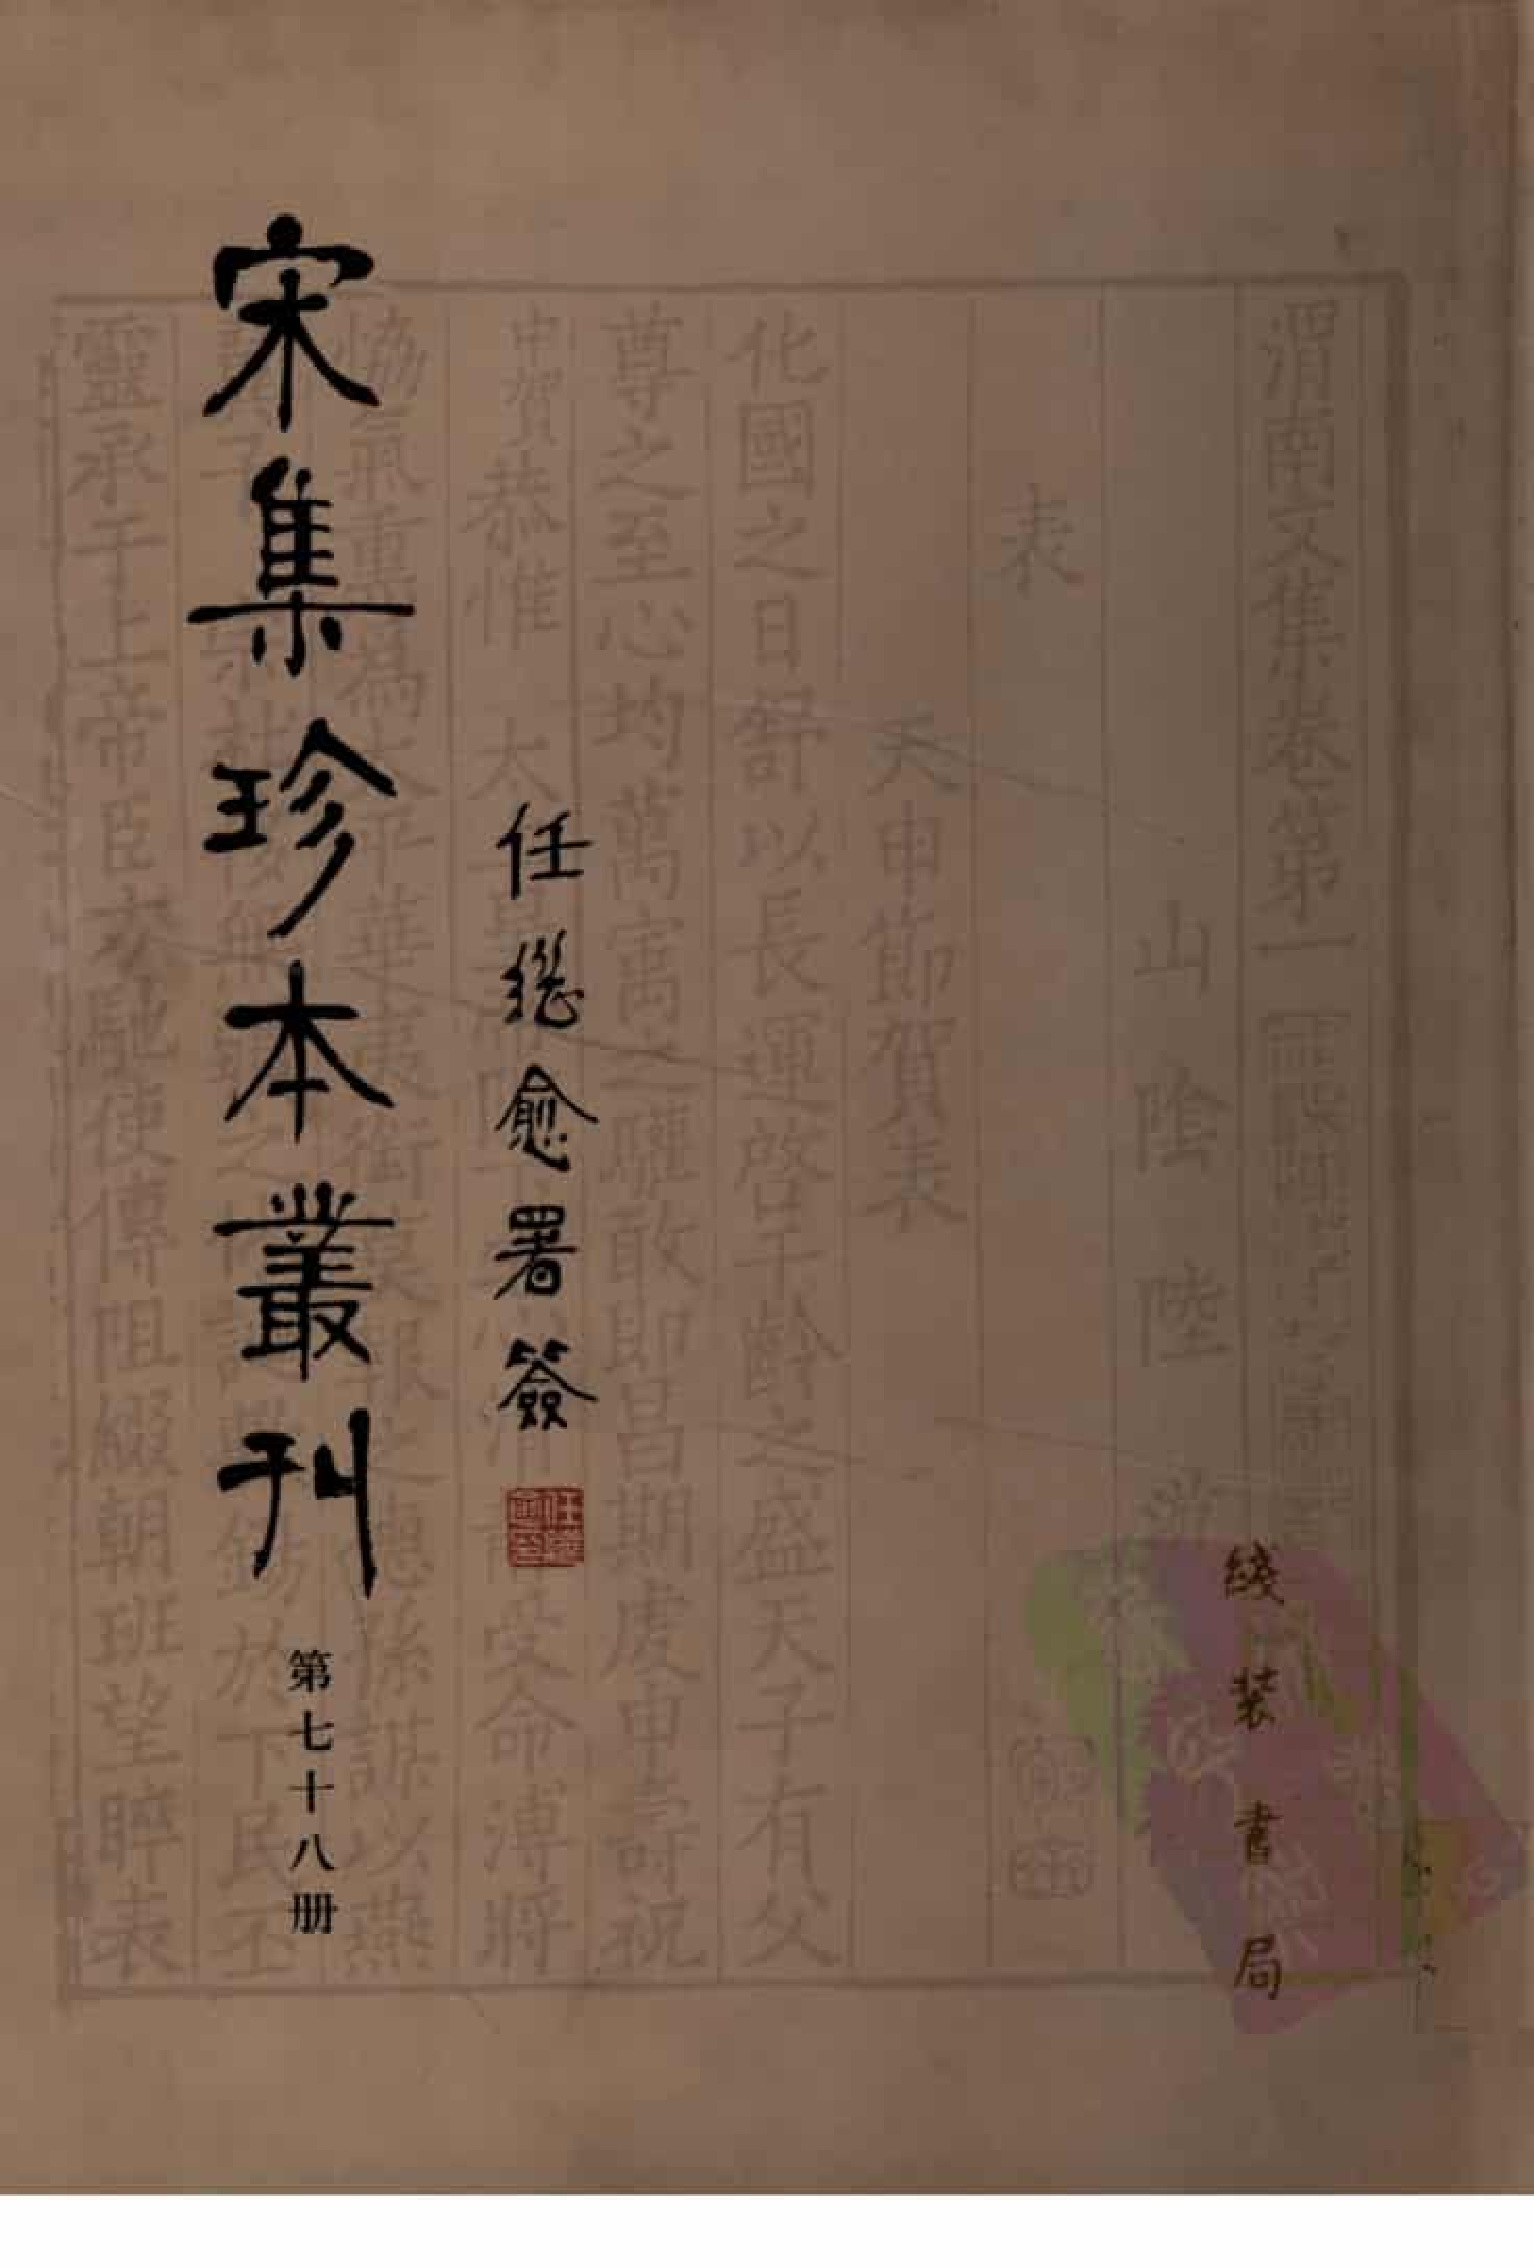 渭南文集卷第一
山陰陸游
表
天申節賀表
化國之日舒以長運啓千齡之盛天子有父
尊之至心均萬㝢之驩敢即昌期虔申壽祝
中賀恭惟太
受命溥將
協氣熏爲太平華夷銜
孫謀以燕
於下民丕
靈承于上帝臣李馳使傳阻綴朝班望睟表
綫裝書局
任繼愈署簽
宋集珍本叢刊
第七十八册